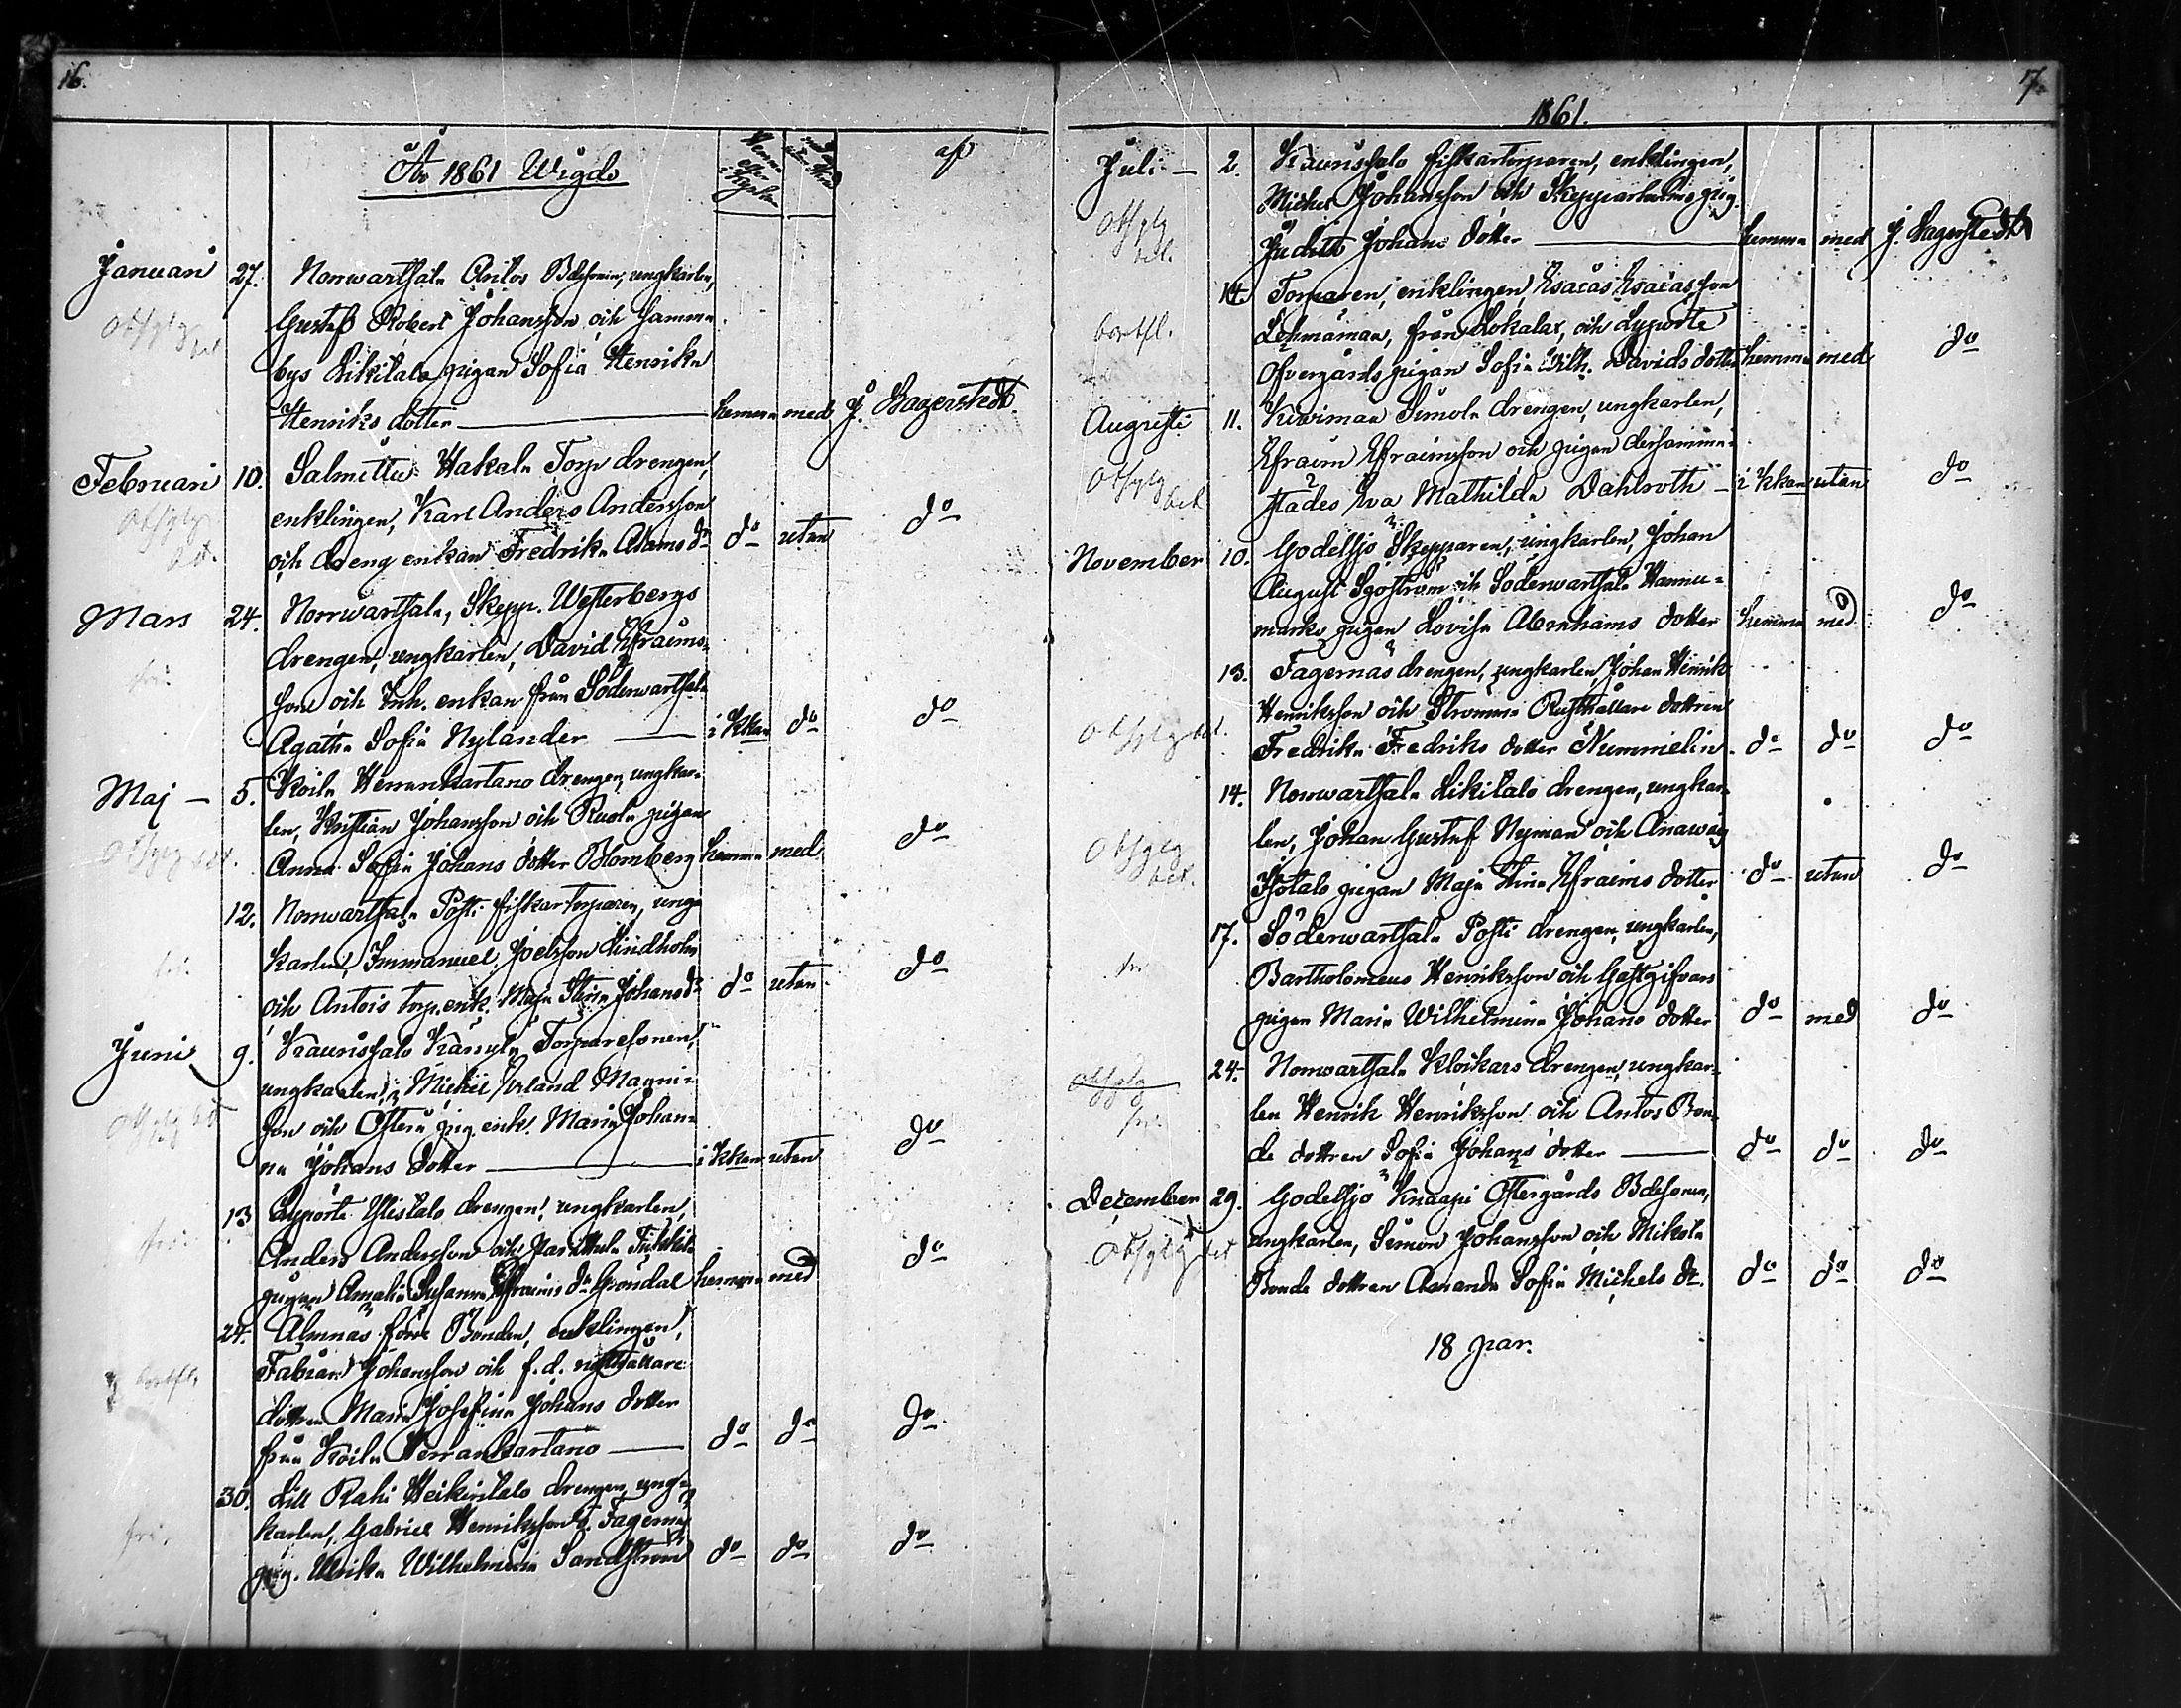 16.
År 1861 Wigde
Hemma eller i Kyrkan
med eller utan
af
Januari 27. Norrwartsala Antos Bdesonen, ungkarlen,
Gustaf Robert Johansson och Hamma
bys Likitalo pigan Sofia Henrika
Henriks dotter hemma med J. Lagerstedt.
Februari 10. Salmittu Hakala Torp drengen,
enklingen, Karl Anders Andersson
och dreng enkan Fredrika Adams dr do utan do
Mars 24. Norrwartsala, Skepp. Westerbergs
drengen, ungkarlen, David Efraims-
son och Inh. enkan från Söderwartsala
Agatha Sofia Nylander i Kkan do do
fri.
Maj 5. Koila Herrankartano drengen, ungkar-
len, Kristian Johansson och Ruola pigan
Anna Sofia Johans dotter Blomberg hemma med do
12. Norrwartsala Posti fiskartorparen, ung-
karlen, Immanuel Joelsson Lindholm
och Antois torp.enk. Maja Stina Johans dr do utan do
fri.
Juni 9. Kaurissalo Torparesonen,
ungkarlen, Michel Erland Magni-
son och pig. enk. Maria Johan-
na Johans dotter i Kkan utan do
13 Lypörtö Ylistalo drengen, ungkarlen,
Anders Andersson och
pigan Amalia Susanna Efraims dr Gröndal hemma med do
fri.
24. Alsnäs förre Bonden, enklingen,
Fabian Johansson och f.d. rusthållare
dottren Maria Josefina Johans dotter
från Koila Herrankartano do do do
bortfl.
30. Lill Rahi Heikintalo drengen, ung-
karlen, Gabriel Henriksson o. Fagernäs
pig. Ulrika Wilhelmina Sandström do do do
fri.
17.
1861.
Juli 2. Kaurissalo fiskartorparen, enklingen,
Michel Johansson och Skepparholms pig.
Judith Johans dotter hemma med J. Lagerstedt
14. Torparen, enklingen, Esaias Esaiasson
Lehmäman, från Lokalax, och Lypörtö
Öfvergårds pigan Sofia Wilh. Davids dotter hemma med do
bortfl.
Augusti 11. Kivimaa Simola drengen, ungkarlen,
Efraim Efraimsson och pigan dersamma-
städes Eva Mathilda Dahlroth i Kkan utan do
November 10. Godelsjö Skepparen, ungkarlen, Johan
August Sjöström och Söderwartsala Hannu-
marko pigan Lovisa Abrahams dotter hemma med do
13. Fagernäs drengen, ungkarlen, Johan Henrik
Henriksson och Strömmi Rusthållare dottren
Fredrika Fredriks dotter Nummelin do do do
14. Norrwartsala Likitalo drengen, ungkar-
len, Johan Gustaf Nyman och
Isotalo pigan Maja Stina Efraims dotter do utan do
17. Söderwartsala Posti drengen, ungkarlen,
Bartholomeus Henriksson och Gästgifvars
pigan Maria Wilhelmina Johans dotter do med do
24. Norrwartsala Klockars drengen, ungkar-
len Henrik Henriksson och Antos Bon-
de dottren Sofia Johans dotter do do do
December 29. Godelsjö Knaapi Östergårds Bdesonen,
ungkarlen, Simon Johansson och Mikola
Bonde dottren Amanda Sofia Michels dr. do do do
18 par.